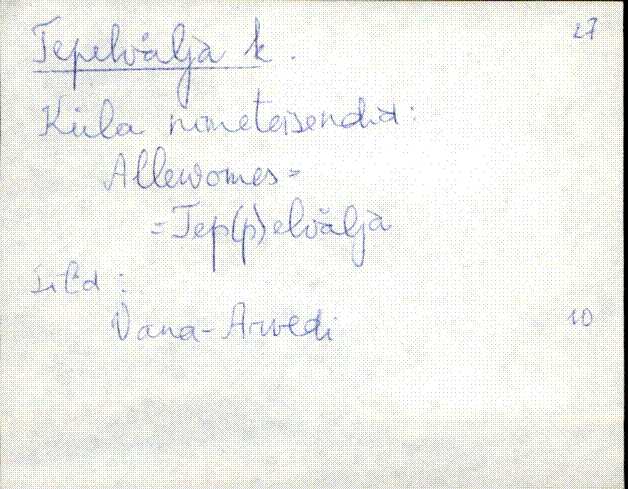 27
Tepelvälja k.
Küla nimeteisendid:
Allewomes =
= Tep(p)elvälja
Sild:
Vana-Arvedi 10